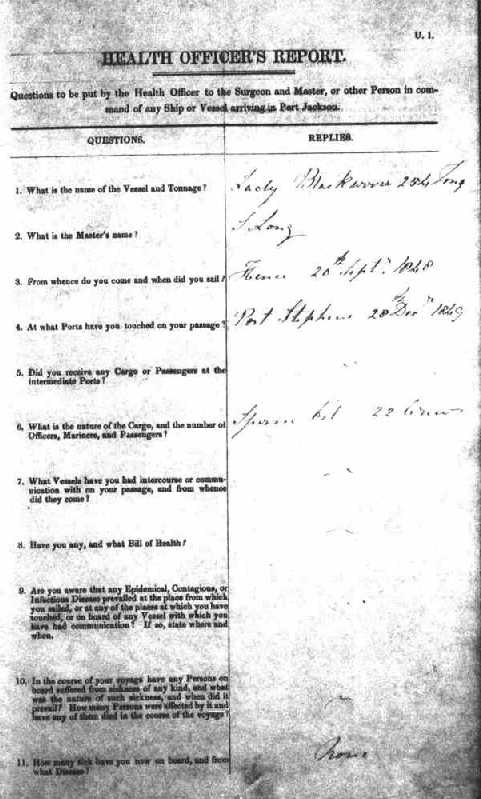 U. 1.
HEALTH OFFICER'S REPORT.
Questions to be put by the Health Officer to the Surgeon and Master, or other Person in com-
mand of any Ship or Vessel arriving in Port Jackson.
QUESTIONS.
REPLIES.
1. What is the name of the Vessel and Tonnage?
Lady Blackwood 254 Tons
2. What is the Master's name?
Long
3. From whence do you come and when did you sail?
Hence 20th Septr 1848
4. At what Ports have you touched on your passage?
Port Stephens 28th Decr 1849
5. Did you receive any Cargo or Passengers at the
Intermediate Ports?
6. What is the nature of the Cargo, and the number of
Officers, Mariners, and Passengers?
Sperm Oil 22 Crew
7. What Vessels have you had intercourse or commu-
nication with on your passage, and from whence
did they come?
8. Have you any, and what Bill of Health?
9. Are you aware that any Epidemical, Contagious, or
Infectious Disease prevailed at the place from which
you sailed, or at any of the places at which you have
touched, or on board of any Vessel with which you
have had communication? If so, state where and
when.
10. In the course of your voyage have any Persons on
board suffered from sickness of any kind, and what
was the nature of such sickness, and when did it
prevail? How many Persons were affected by it and
have any of them died in the course of the voyage?
11. How many sick have you now on board, and from
what Disease?
None